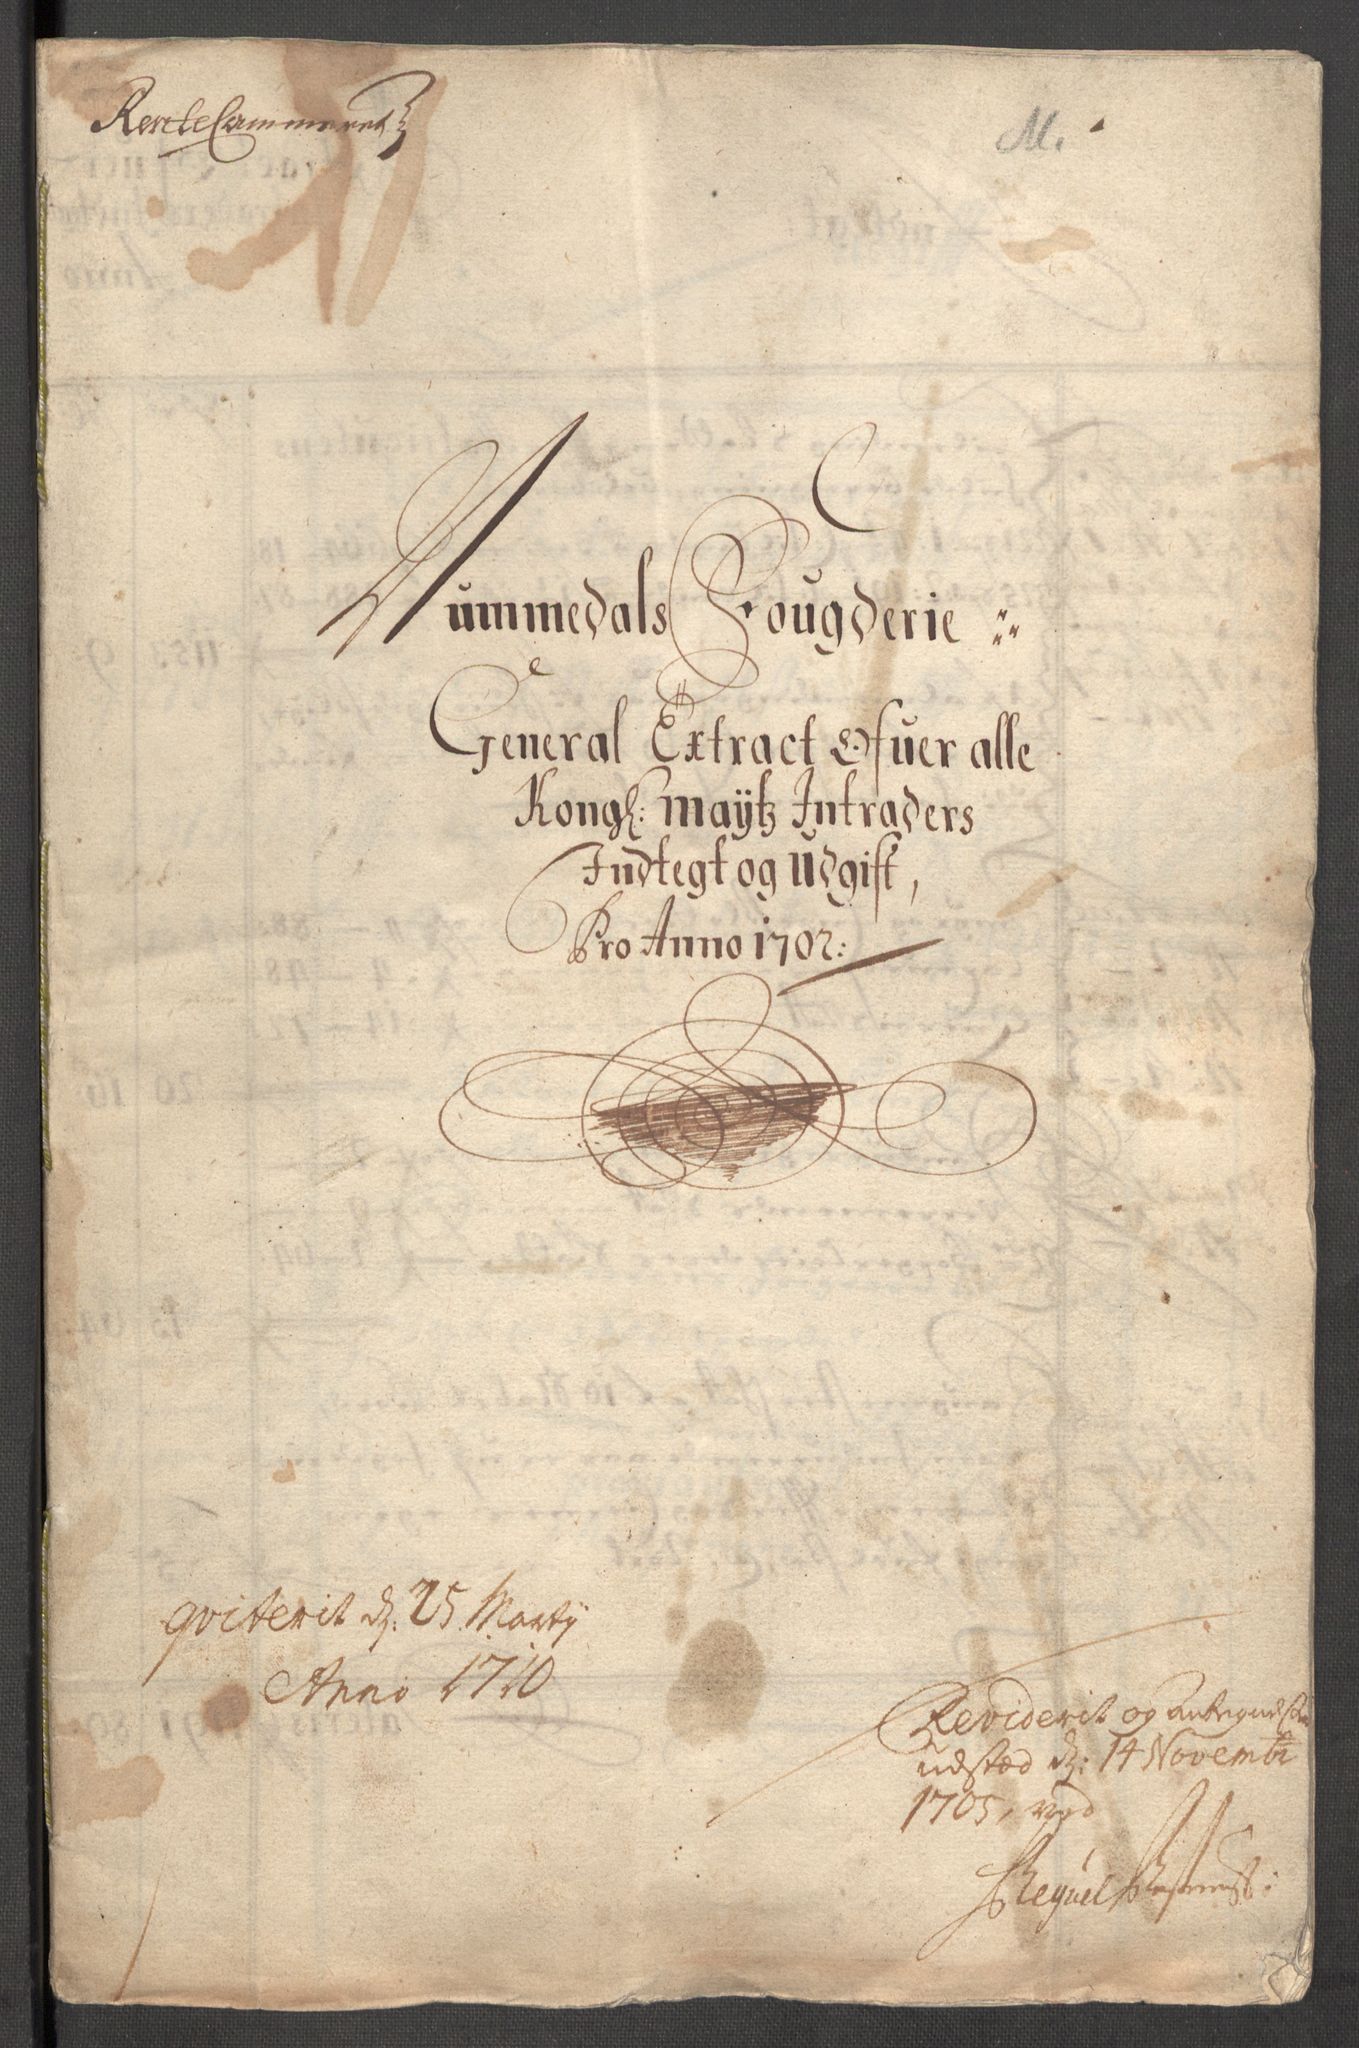 RenteCammeret
M.
Nummedals Fougderie
General Extract Ofuer alle
Kongl: Maÿtz Intraders
Indtegt og Udgift,
Pro Anno 1702:
qviterit d: 25 Martÿ
Anno 1710
Reviderit og
udstæd d: 14 Novembr
1705, ved